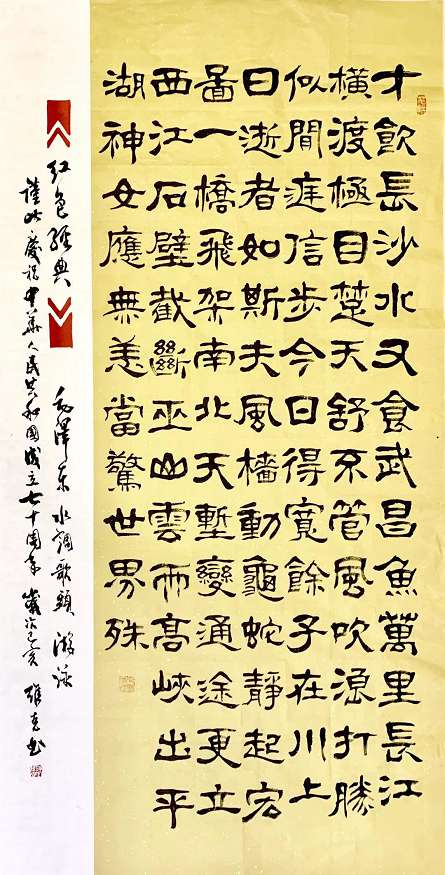 才飲長沙水又食武昌魚萬里長江
橫渡極目楚天舒不管風吹浪打勝
似閒庭信步今日得寬餘子在川上
曰逝者如斯夫風檣動龜蛇靜起宏
圖一橋飛架南北天塹變通途更立
西江石壁截斷巫山雲雨高峽出平
湖神女應無恙當驚世界殊
红色經典 毛澤東水調歌頭游泳
謹此慶祝中華人民共和國成立七十周年 歲次己亥